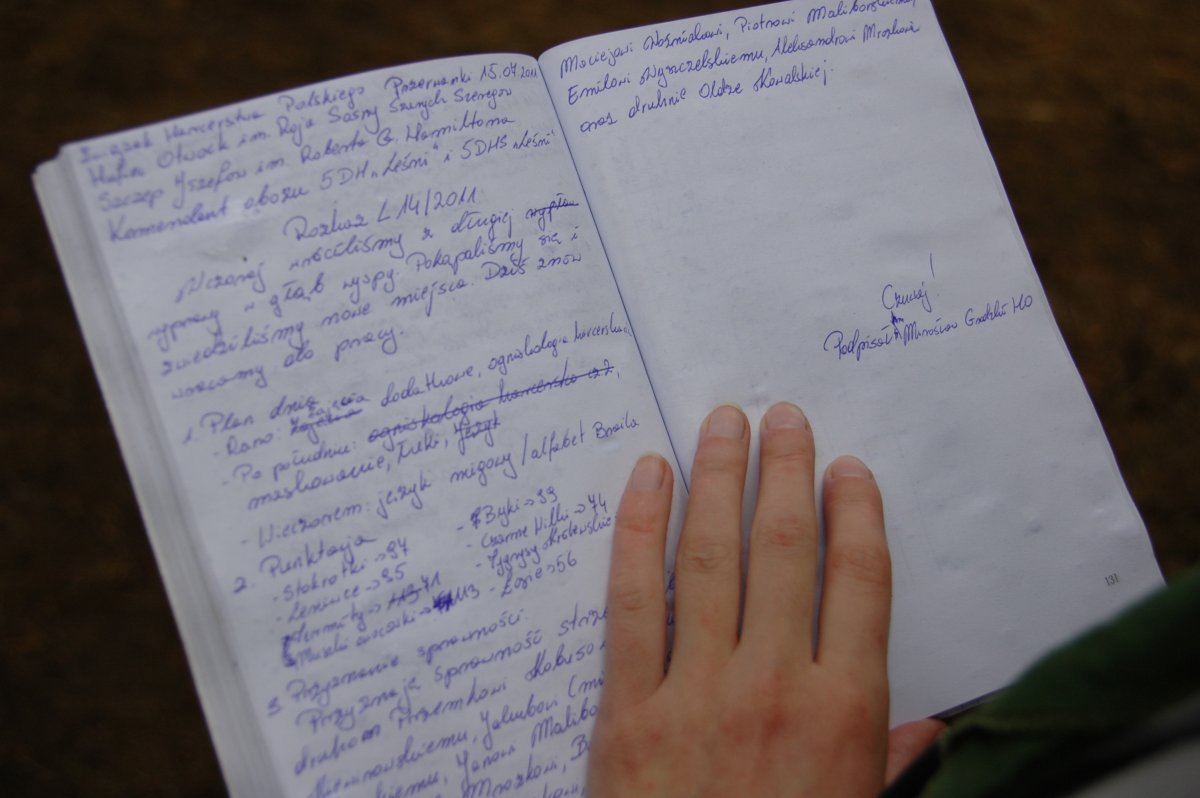 Związek Harcerstwa Polskiego Przerwanki 15.07.2011
Hufiec Otwock im. Roja Sosny Szarych Szeregów
Szczep Józefów im. Roberta G. Hamiltona
Komendant obozu 5DH „Leśni” i 5DHS „Leśni”
Rozkaz L 14/2011
Wczoraj wróciliśmy z długiej
wyprawy w głąb wyspy. Pokąpaliśmy się i
zwiedziliśmy nowe miejsca. Dziś znów
wracamy do pracy.
1. Plan dnia
- Rano: zajęcia dodatkowe, ogniskologia harcerska,
- Po południu: ogniskologia harcerska cz 2,
maskowanie, Języki
- Wieczorem: język migowy / alfabet Braila
2. Punktacja
- Stokrotki → 94
- Leniwce → 95
- Termity → 113 71
- Muszki owocówki → 113
- Byki → 99
- Czarne Wilki → 74
- Tygrysy królewskie
- Łosie → 56
3. Przyznanie sprawności.
Przyznaję sprawność
druhom Przemkowi
Jakubowi
Janowi
Mrozkowi, B
Maciejowi Woźniakowi, Piotrowi
Emilowi Wyszczelskiemu, Aleksandrowi Mrozkowi
oraz druhnie Oldze Kowalskiej.
Czuwaj!
Podpisał Mirosław Grodzki HO
131